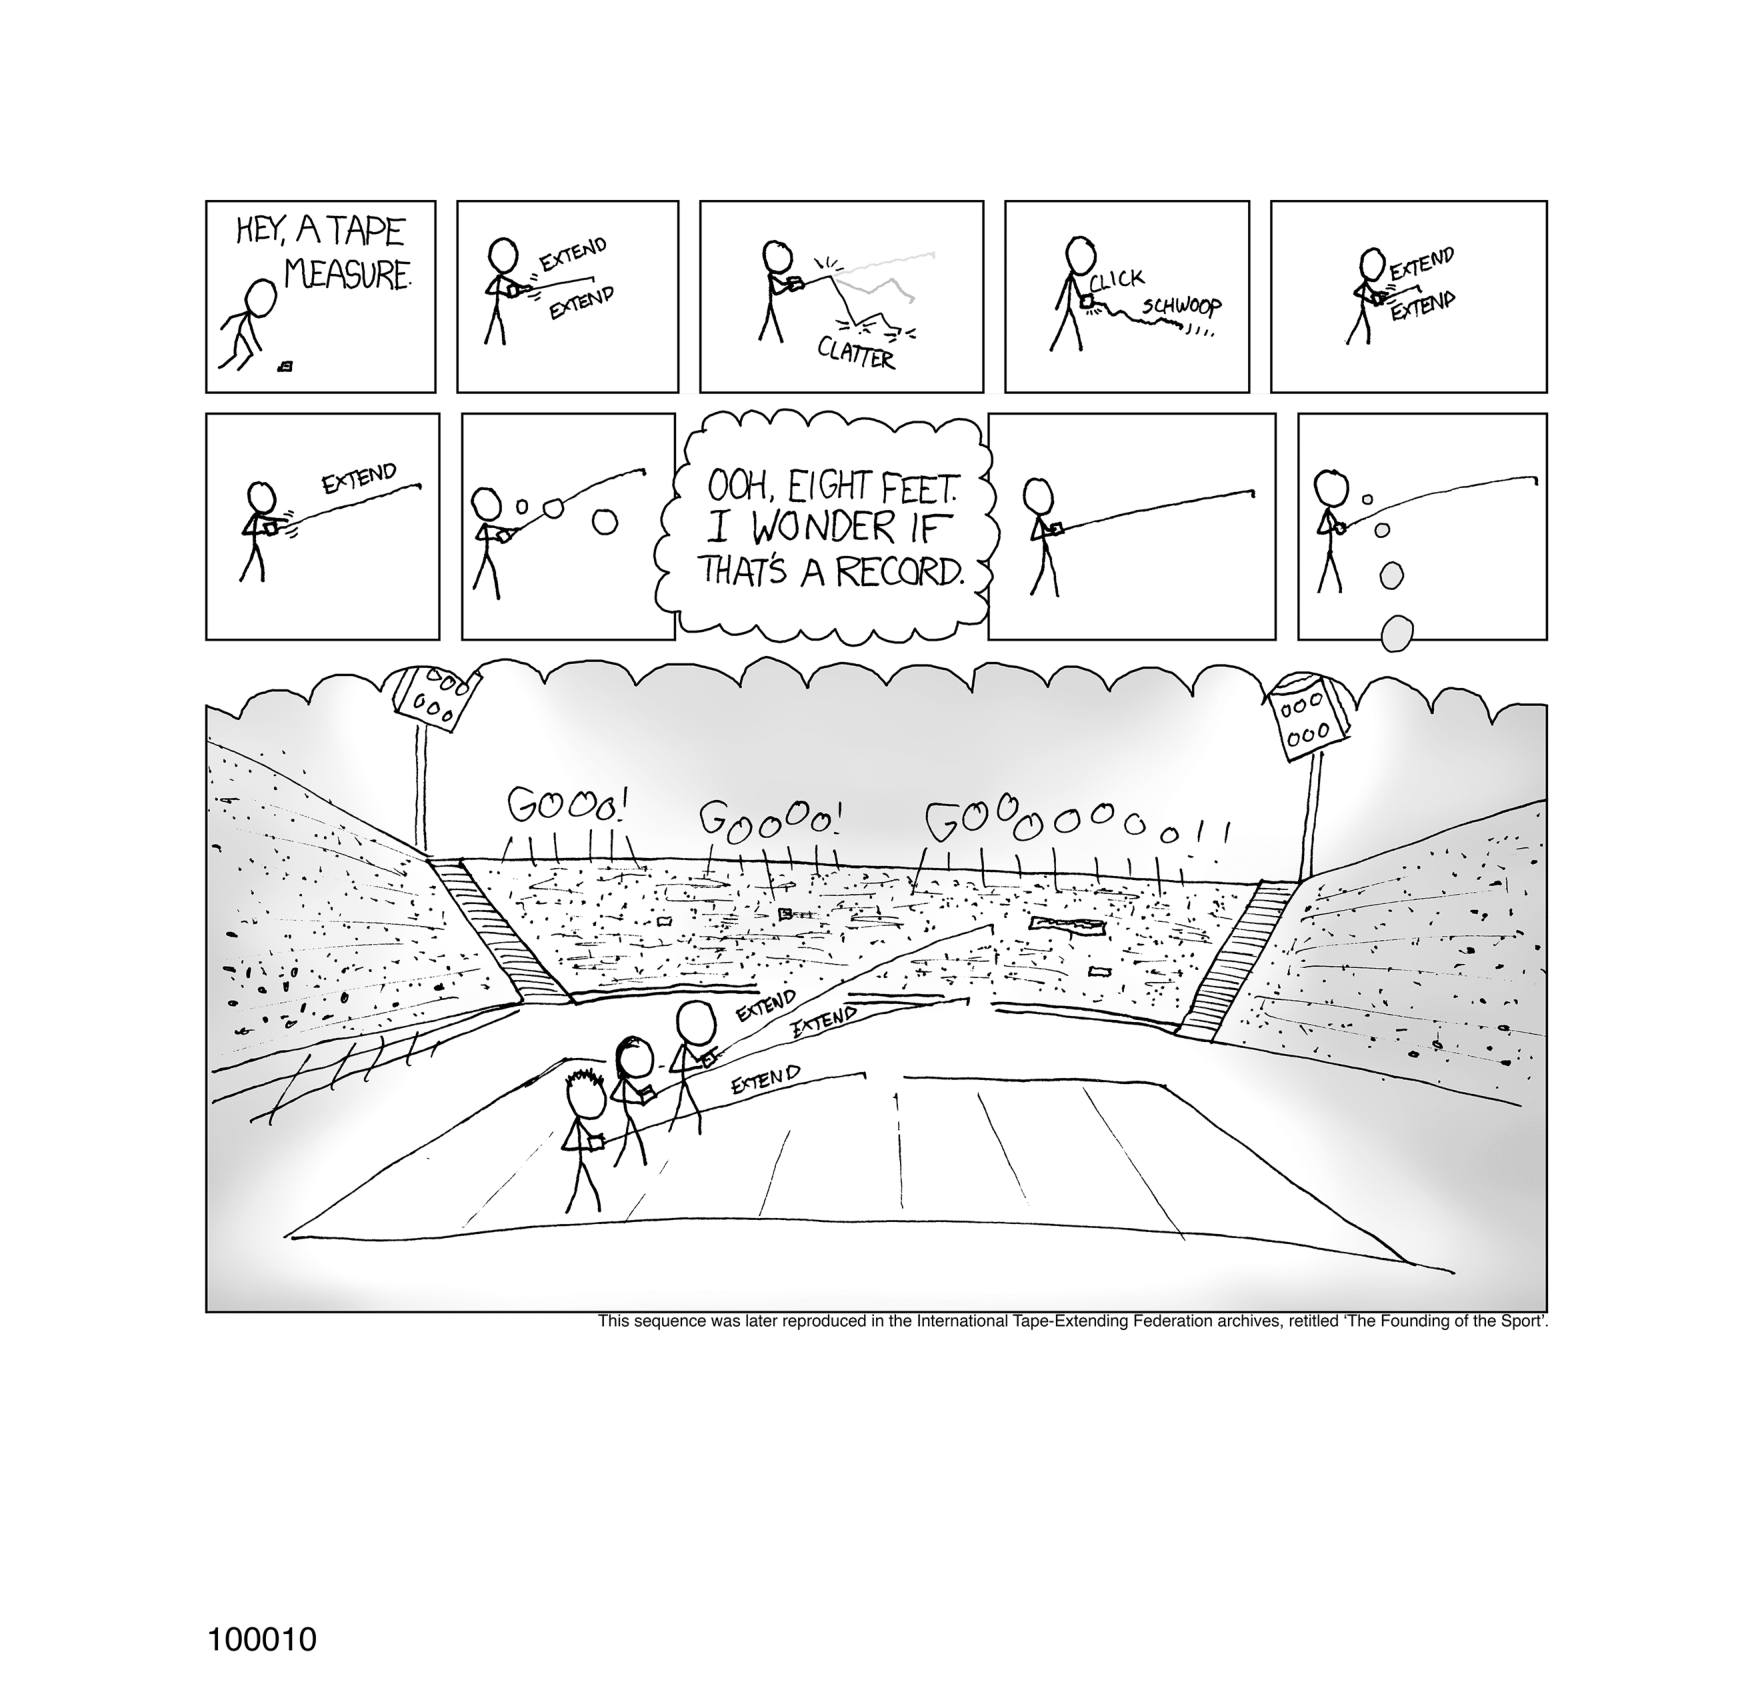 HEY, A TAPE
MEASURE.
EXTEND
EXTEND
CLATTER
CLICK
SCHWOOP
EXTEND
EXTEND
EXTEND
OOH, EIGHT FEET.
I WONDER IF
THAT'S A RECORD.
GOOO!
GOOOO!
GOOOOOOO!!
EXTEND
EXTEND
EXTEND
This sequence was later reproduced in the International Tape-Extending Federation archives, retitled ‘The Founding of the Sport’.
100010